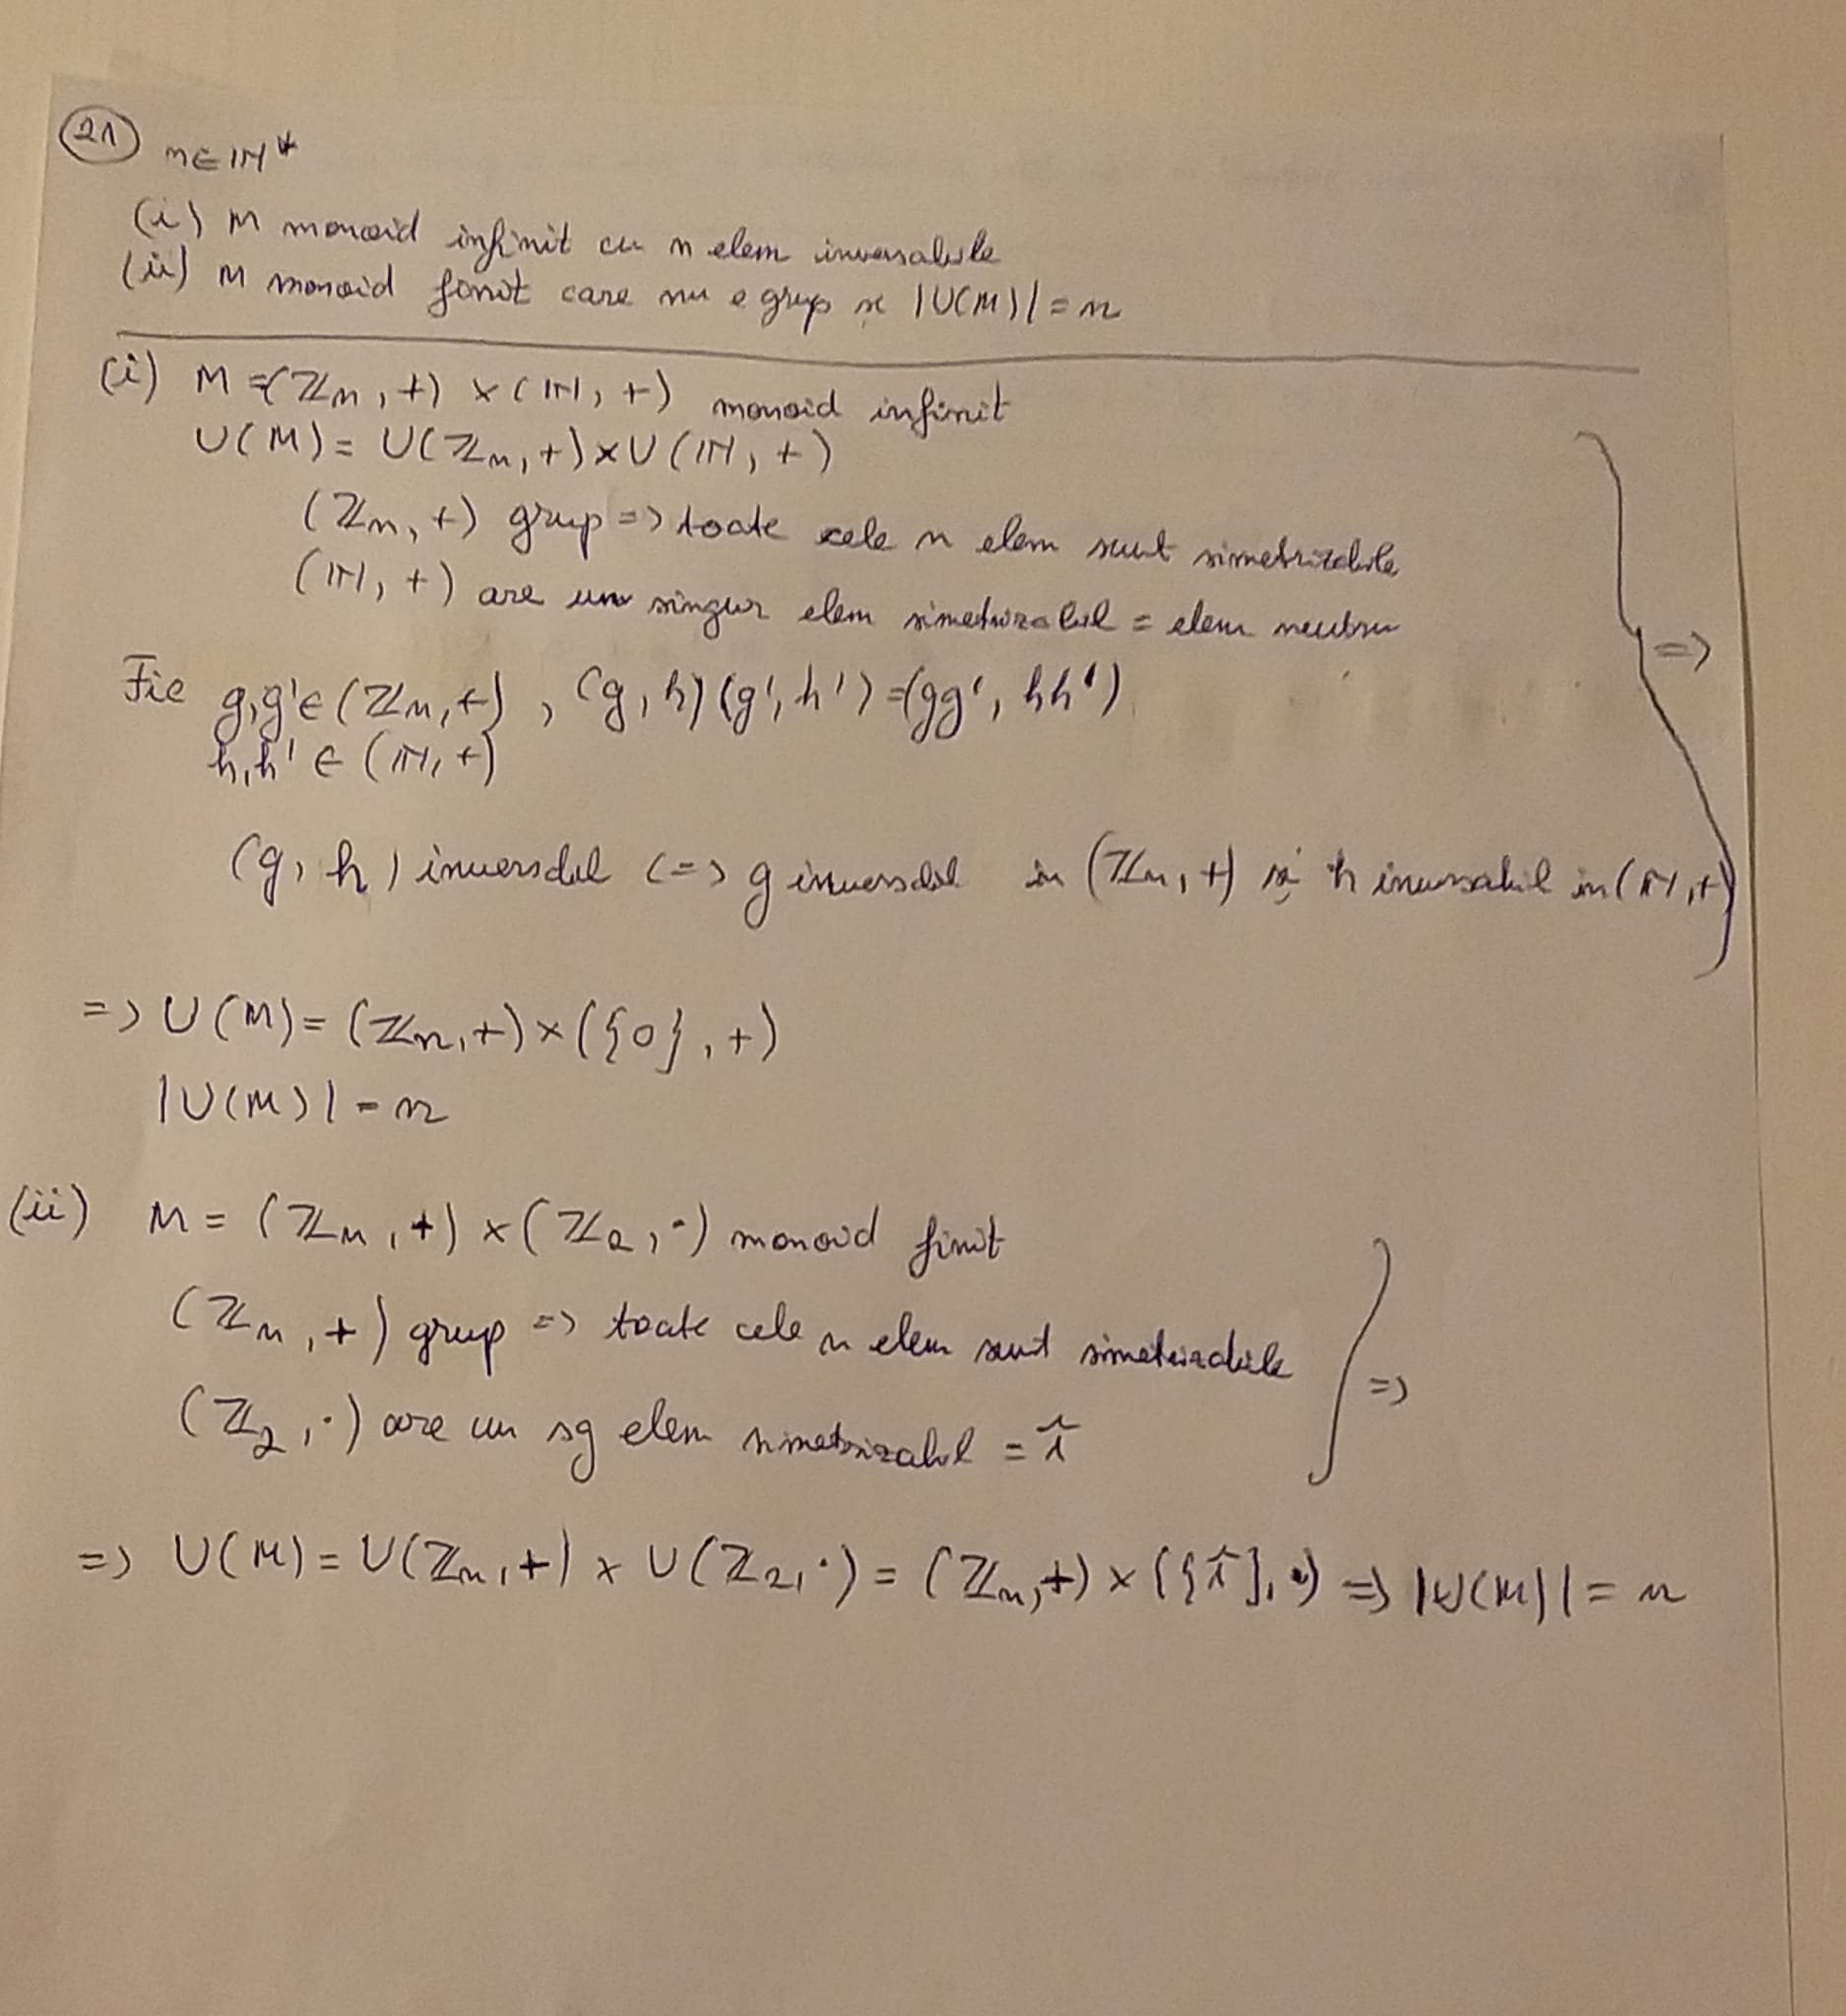 21 n∈ℕ*
(i) M monoid infinit cu n elem inversabile
(ii) M monoid finit care nu e grup și |U(M)| = n
(i) M = (ℤn, +) × (ℕ, +) monoid infinit
U(M) = U(ℤn, +) × U(ℕ, +)
(ℤn, +) grup => toate cele n elem sunt simetrizabile
(ℕ, +) are un singur elem simetrizabil = elem neutru
=>
Fie g,g'∈(ℤn,+), (g, h)(g', h') = (gg', hh')
h,h' ∈ (ℕ, +)
(g, h) inversabil <=> g inversabil in (ℤn, +) și h inversabil in (ℕ, +)
=> U(M) = (ℤn, +) × ({0}, +)
|U(M)| = n
(ii) M = (ℤn, +) × (ℤ2, ·) monoid finit
(ℤn, +) grup => toate cele n elem sunt simetrizabile
=>
(ℤ2, ·) are un sg elem simetrizabil = 1̂
=> U(M) = U(ℤn, +) × U(ℤ2, ·) = (ℤn, +) × ({1̂}, ·) => |U(M)| = n